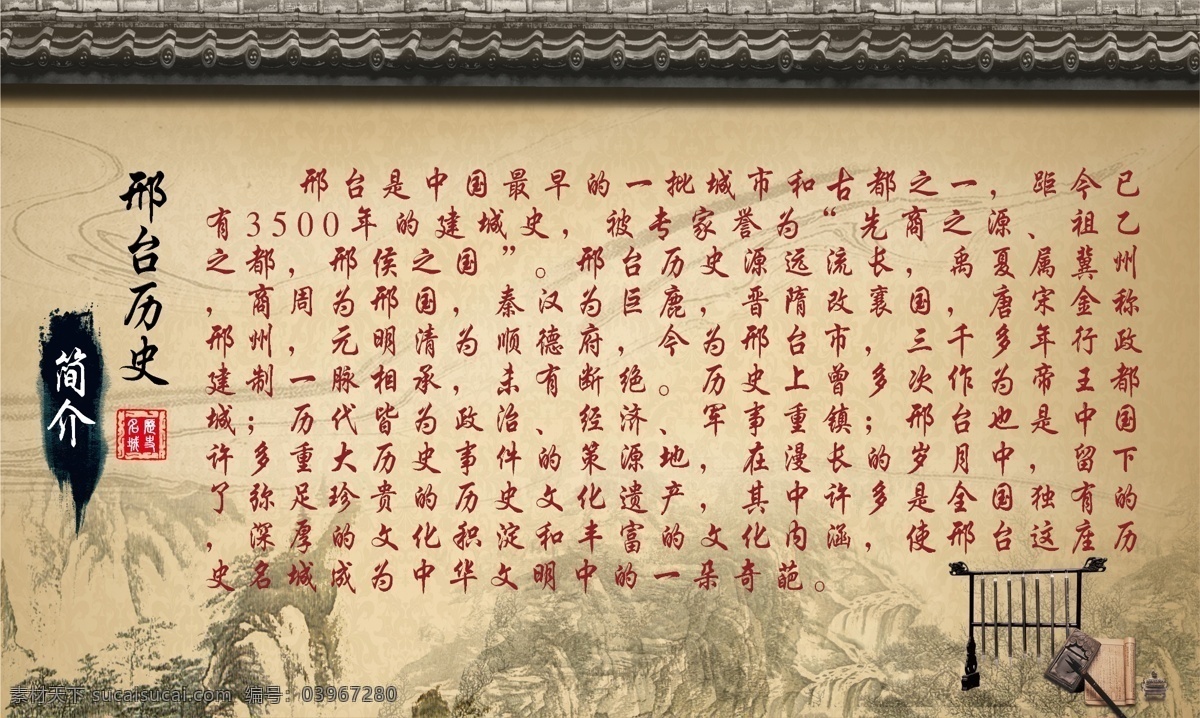 邢台历史
简介
歷史名城
邢台是中国最早的一批城市和古都之一，距今已
有3500年的建城史，被专家誉为“先商之源、祖乙
之都，邢侯之国”。邢台历史源远流长，禹夏属冀州
，商周为邢国，秦汉为巨鹿，晋隋改襄国，唐宋金称
邢州，元明清为顺德府，今为邢台市，三千多年行政
建制一脉相承，未有断绝。历史上曾多次作为帝王都
城；历代皆为政治、经济、军事重镇；邢台也是中国
许多重大历史事件的策源地，在漫长的岁月中，留下
了弥足珍贵的历史文化遗产，其中许多是全国独有的
，深厚的文化积淀和丰富的文化内涵，使邢台这座历
史名城成为中华文明中的一朵奇葩。
素材天下 sucaisucai.com 编号：03967280